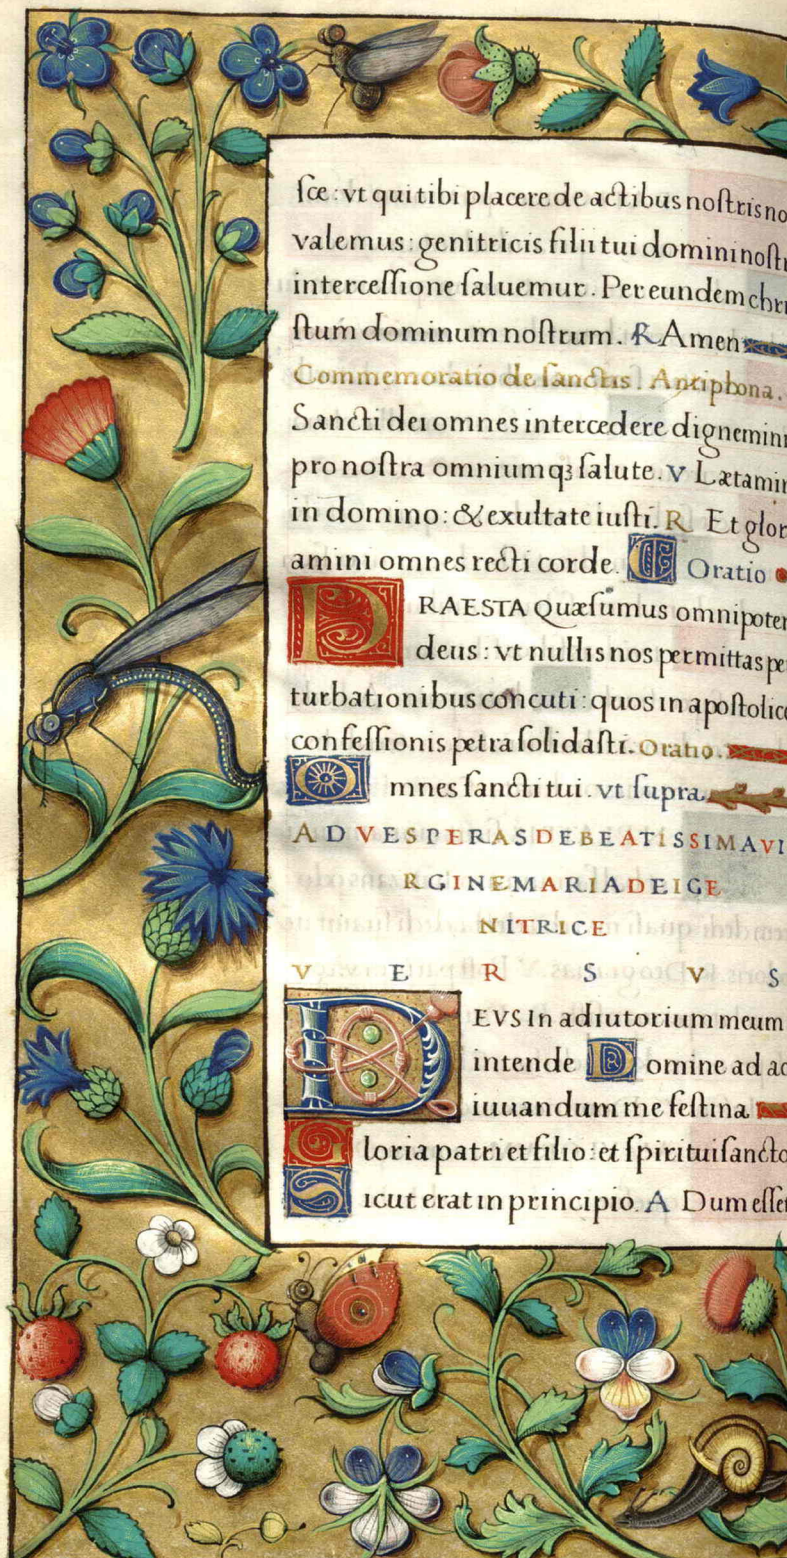 ſce: vt qui tibi placere de actibus noſtris no
valemus: genitricis filii tui domini noſt
interceſſione ſaluemur. Per eundem chri
ſtum dominum noſtrum. R Amen
Commemoratio de ſanctis. Antiphona.
Sancti dei omnes intercedere dignemini
pro noſtra omniumqꝫ ſalute. V Lætamin
in domino: & exultate iuſti. R Et glor
amini omnes recti corde. Oratio
PRAESTA Quæſumus omnipoten
deus: vt nullis nos permittas per
turbationibus concuti: quos in apoſtolice
confeſſionis petra ſolidaſti. Oratio.
Omnes ſancti tui. vt ſupra
ADVESPERASDEBEATISSIMAVI
RGINEMARIADEIGE
NITRICE
VERSVS
DEVS In adiutorium meum
intende Domine ad ad
iuuandum me feſtina
Gloria patri et filio: et ſpiritui ſancto
Sicut erat in principio. A Dum eſſet